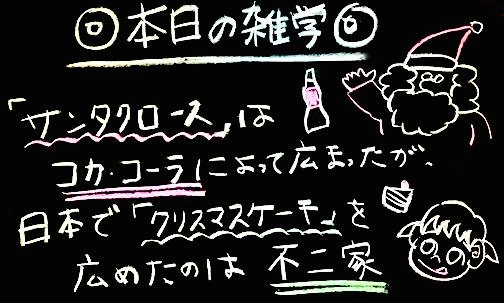 ◎本日の雑学◎
「サンタクロース」は
コカ・コーラによって広まったが、
日本で「クリスマスケーキ」を
広めたのは 不二家